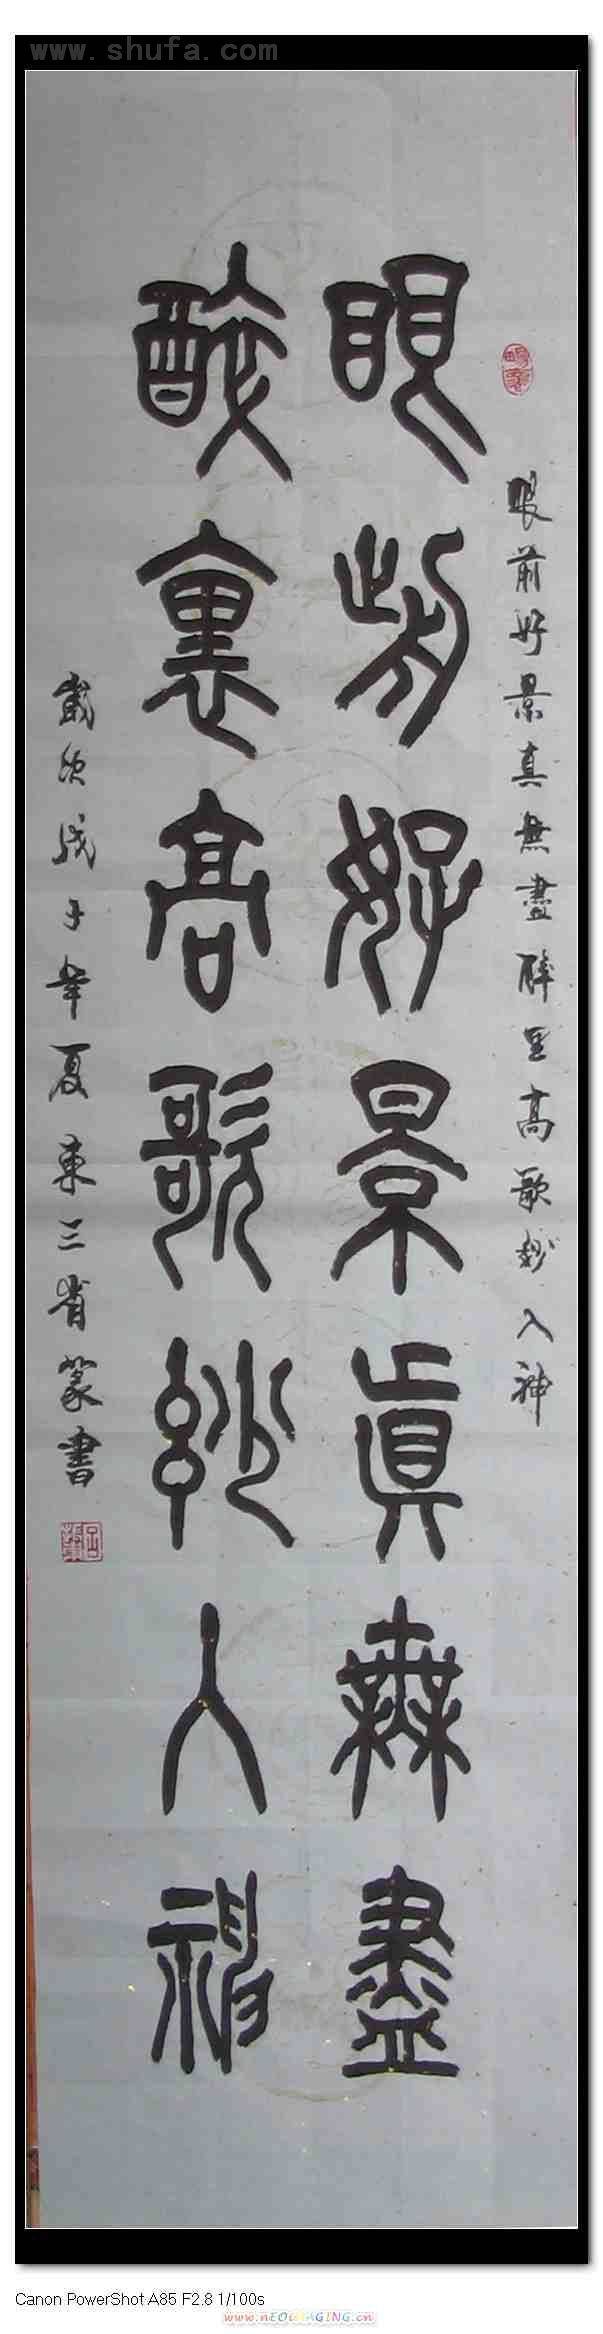 www.shufa.com
眼前好景真無盡醉里高歌妙入神
眼前好景真無盡
醉裏高歌妙入神
歲次戊子年夏東三省篆書
Canon PowerShot A85 F2.8 1/100s
www.nEOIMAGING.cn